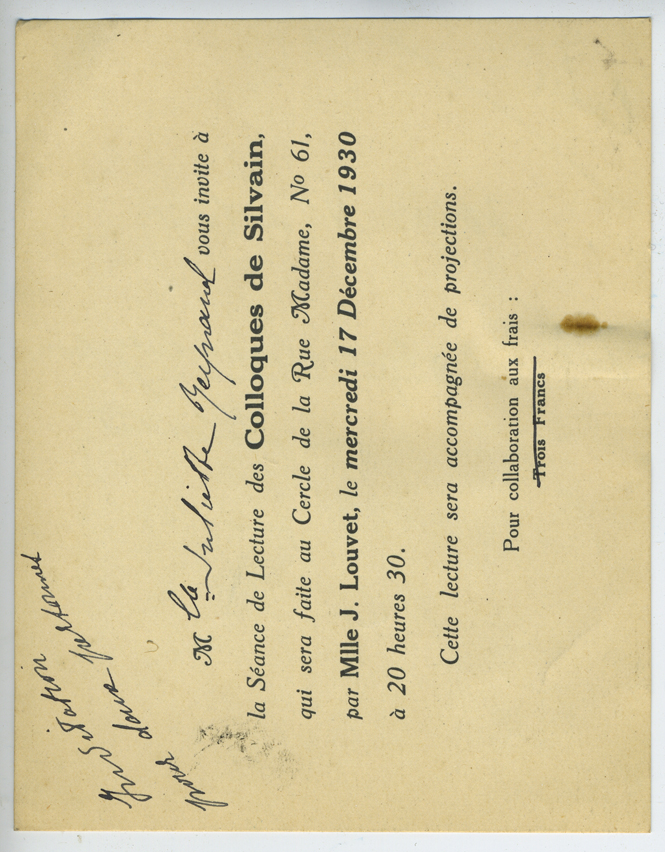 Invitation
pour deux personnes
M lle Juliette vous invite à
la Séance de Lecture des Colloques de Silvain,
qui sera faite au Cercle de la Rue Madame, No 61,
par Mlle J. Louvet, le mercredi 17 Décembre 1930
à 20 heures 30.
Cette lecture sera accompagnée de projections.
Pour collaboration aux frais :
Trois Francs